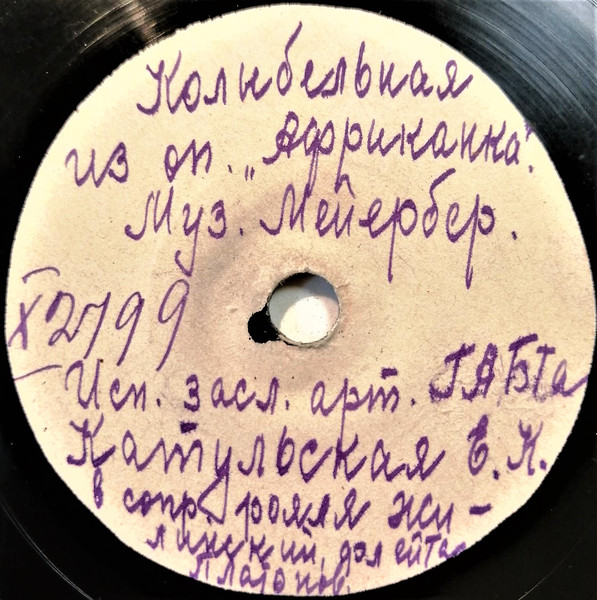 Колыбельная
из оп. „Африканка".
Муз. Мейербер.
X2799
Исп. засл. арт. ГАБТа
Катульская Е. К.
в сопр. рояля Жи-
линский, флейта
Платонов.